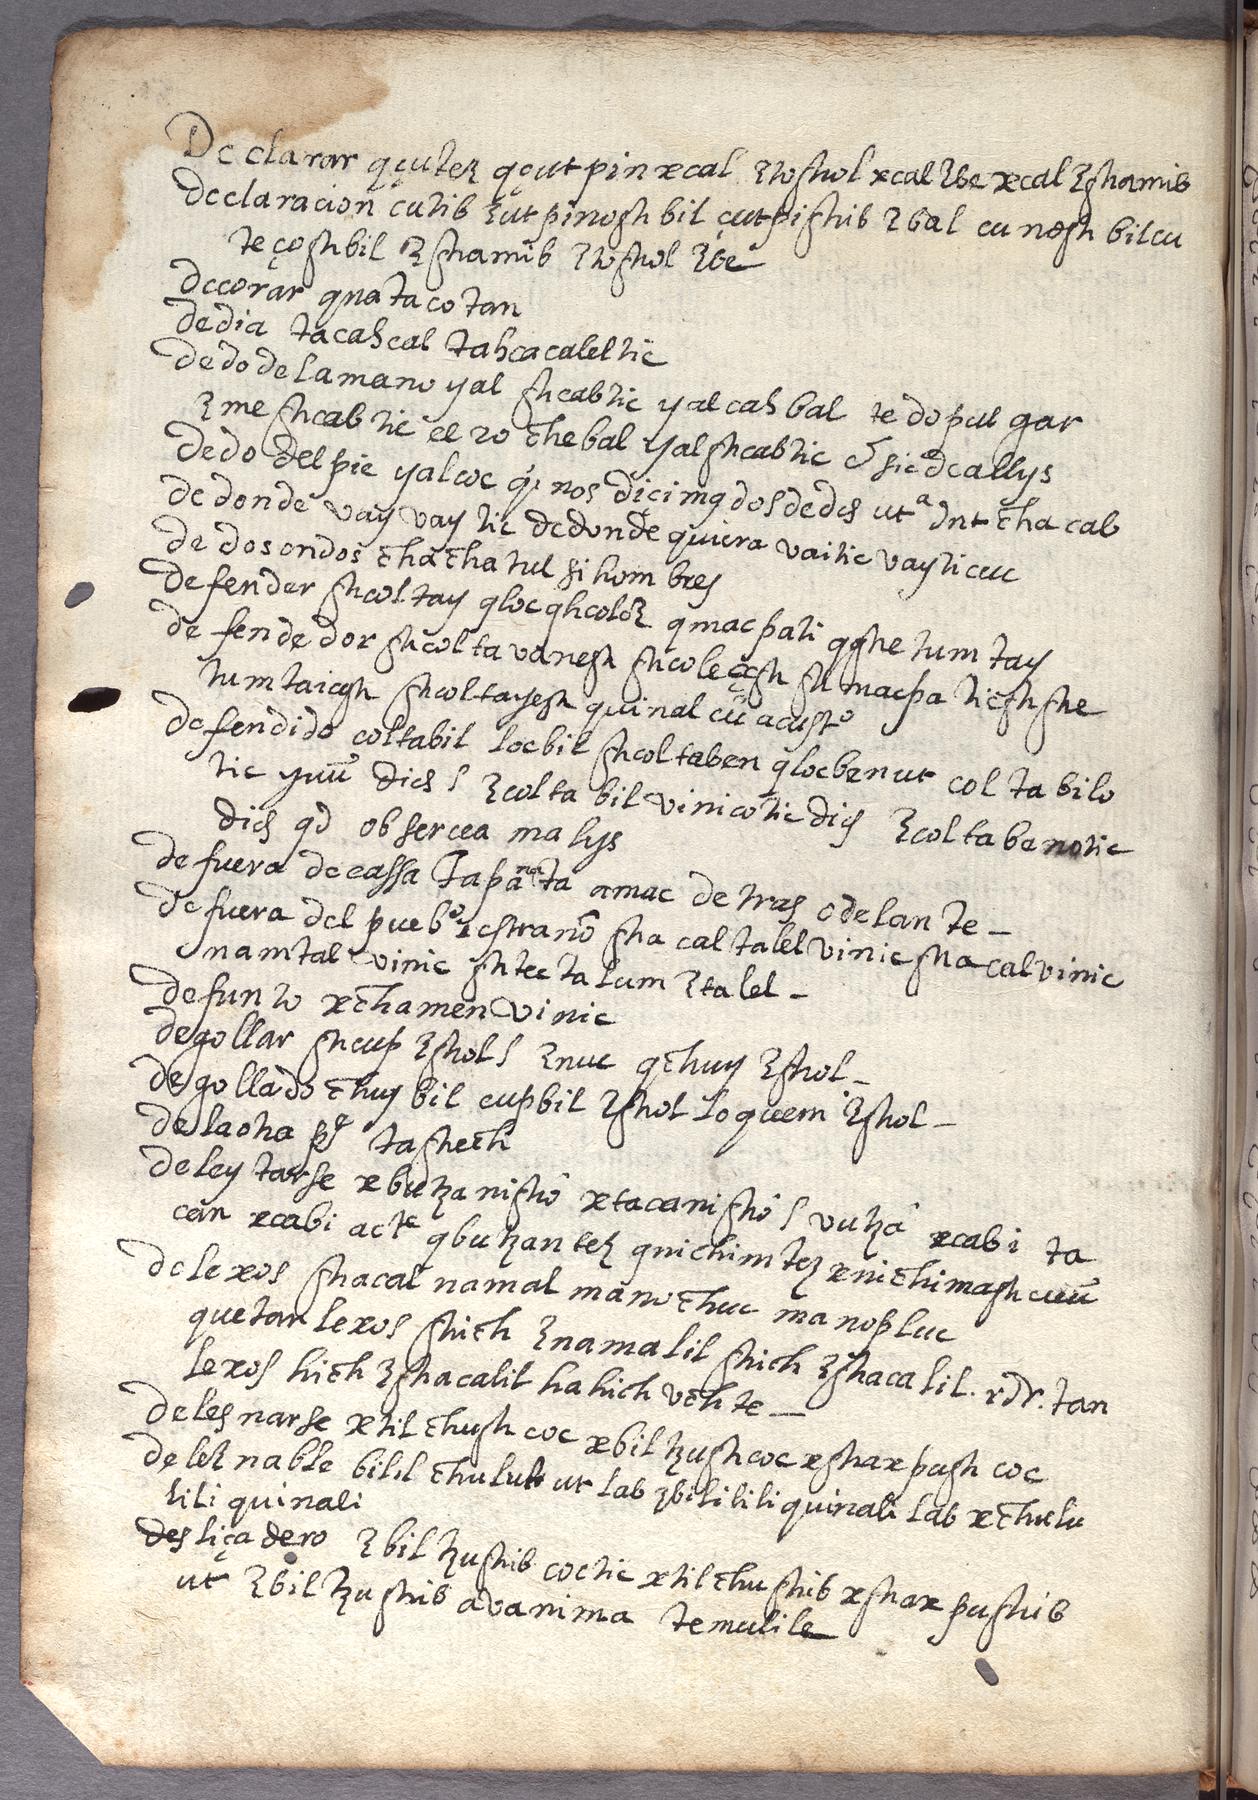 Declarar qçuteꜩ qçutpinxcal ꜩtoghol xcal ꜩbe xcal ꜩghamib
declaracion cutib ꜩutpinoghbil çutpighib ꜩbal cunoghbilcu
teçoghbil ꜩghamib ꜩtoghol ꜩbe
decorar qnatacotan
de dia tacahcal tahcacaleltic
dedo de la mano yal ghcabtic yalcahbal te do pulgar
ꜩme ghcabtic el 2o chebal yalghcabtic & sic de allys
dedo del pie yalcoc
de donde vay vaytic de donde quiera vaitic vayticuc
de dos en dos chacha tul si hombres
defender ghcoltay qloc qhcoloꜩ qmacpati qghetumtay
defendedor ghcoltavanegh ghcolegh ghmacpatiegh ghghe
tumtaiegh ghcoltayegh quinal cū acusto
defendido coltabil locbil ghcoltaben qlocben ut coltabilo
tic dices ꜩcoltabil vinicotic dices ꜩcoltabenotic
dices qd ob sercea malys
de fuera de cassa Tapāna ta amac detras o delante
de fuera del pueblo estraño ghacaltalel vinic ghacal vinic
namtal vinic ghtectalum ꜩtalel
defunto xchamen vinic
degollar ghcup ꜩghol l ꜩnuc qchuy ꜩghol
degollado chuybil cupbil ꜩghol lo quem ꜩghol
de la otra pe taghech
deleytarse xbuꜩanigho xtacanigho l vuꜩa xcabi ta
can xcabi acte qbuꜩanteꜩ qnichimteꜩ xnichimagh cuū
de lexos ghacal namal mamochuc manopluc
que tan lexos ghich ꜩnamalil ghich ꜩghacalil. rdr. tan
lexos hich ꜩghacalil hahich vchte
delesnarse xtilchugh coc xbilꜩugh coc xgharpugh coc
deleꜩnable bilil chulul ut lab ꜩbililiquinali lab xchulu
lili quinali
desliçadero ꜩbilꜩughib coctic xtilchughib xgharpughib
ut ꜩbilꜩughib avanima temulile